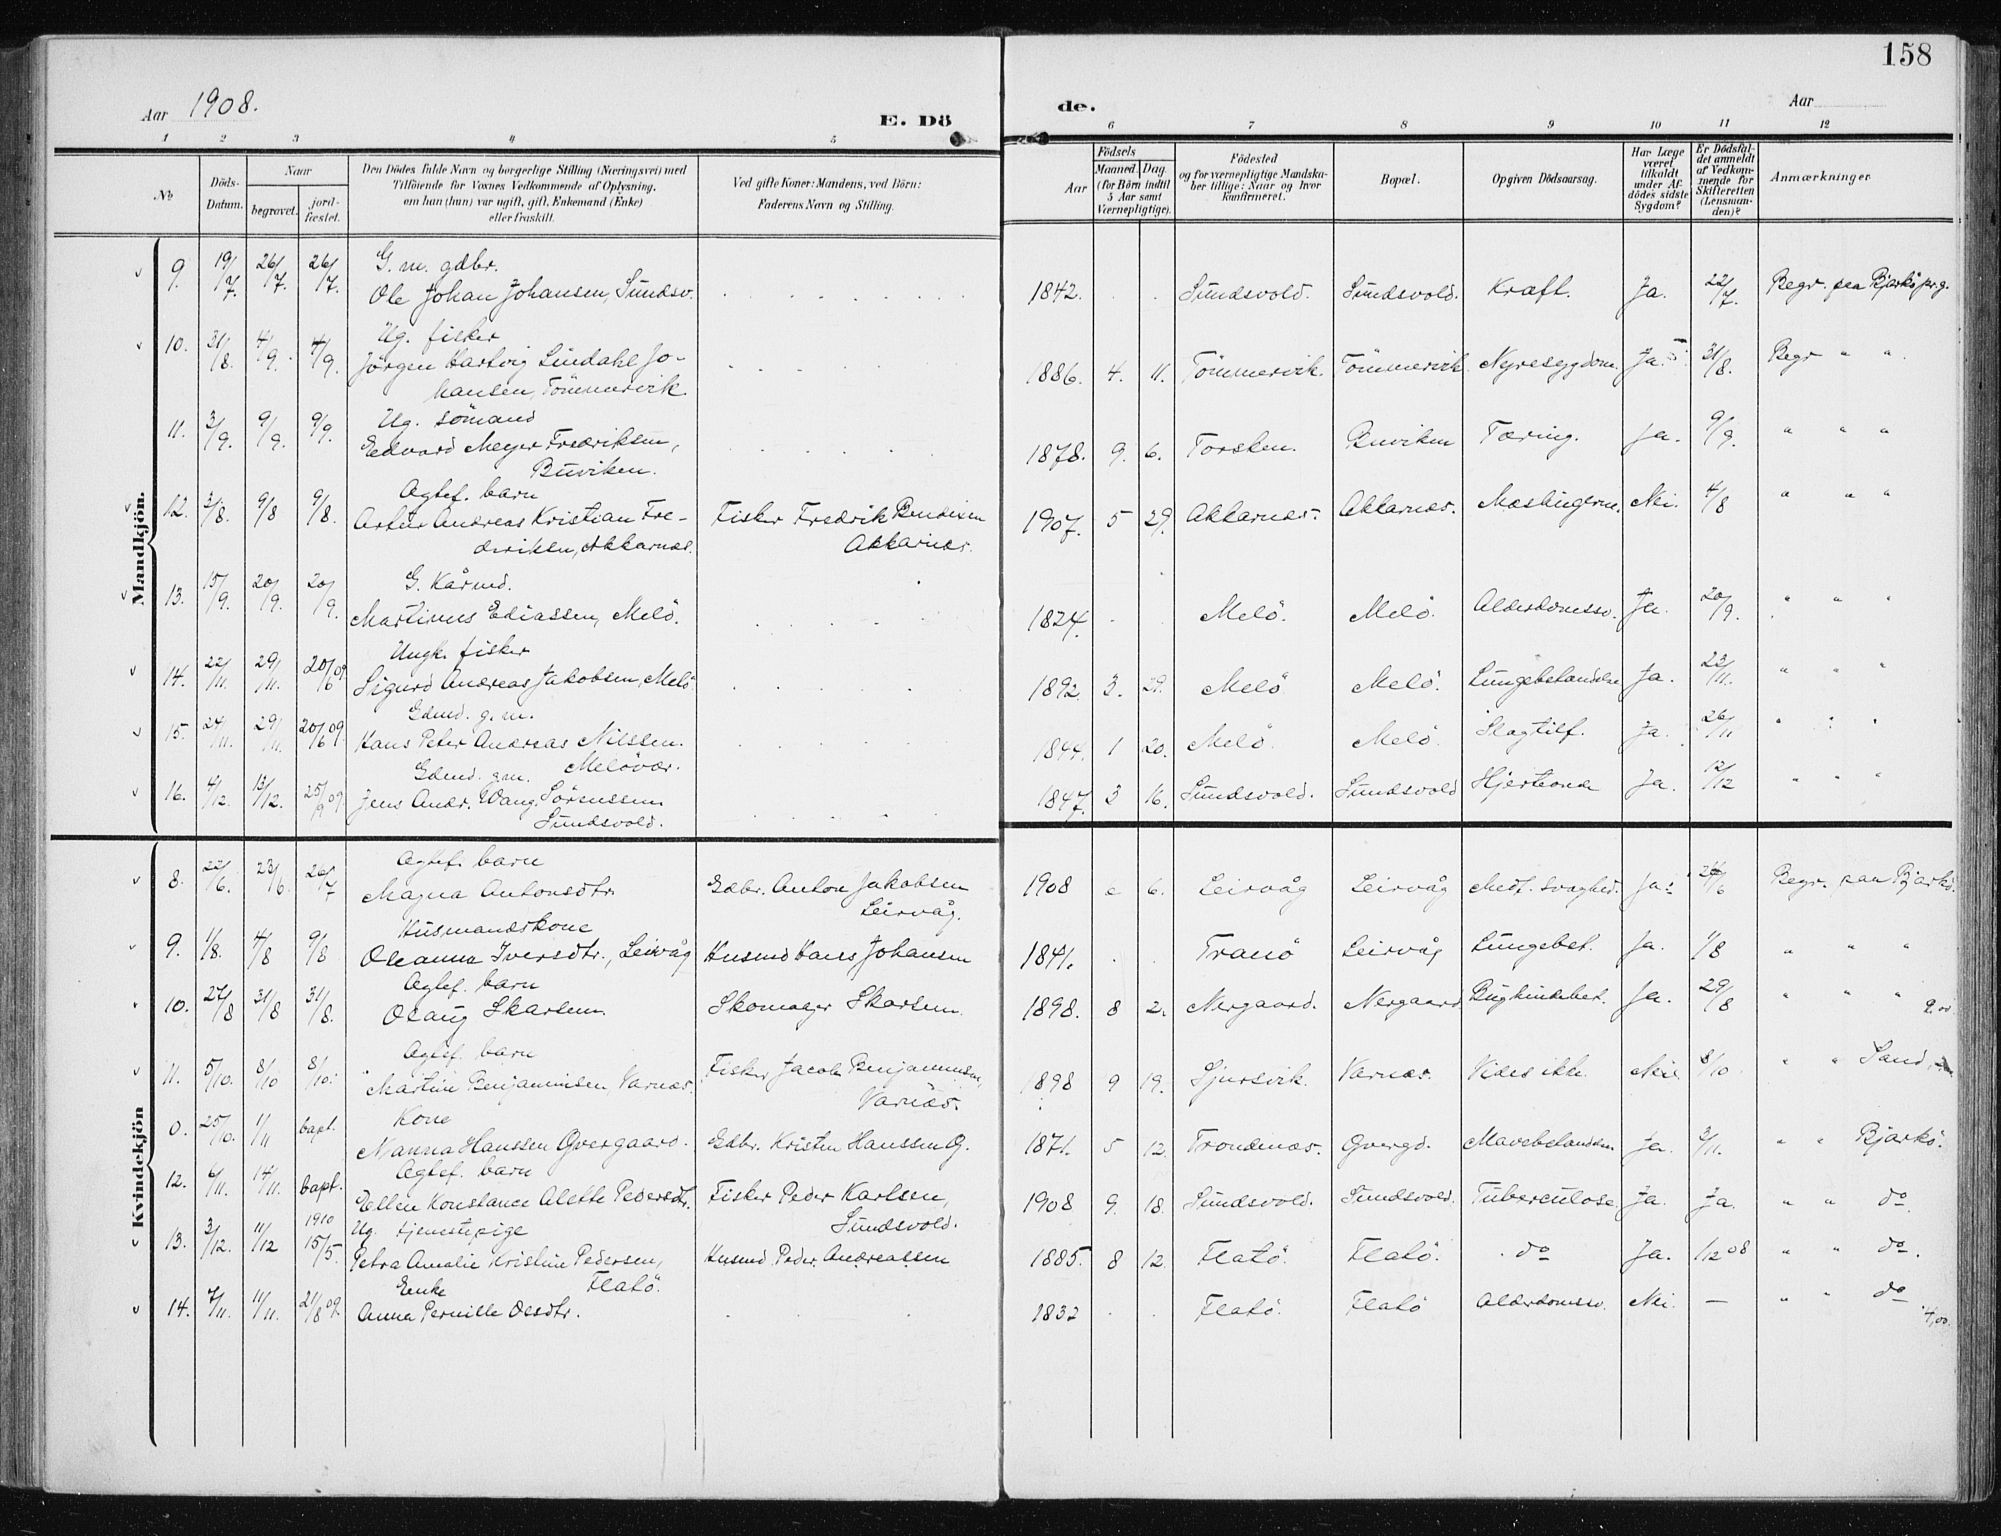 158
Aar 1908.
E. Dö
de.
Aar
1 2 3 4 5 6 7 8 9 10 11 12
No
Döds-Datum.
Naar
begravet.
jord-fæstet.
Den Dödes fulde Navn og borgerlige Stilling (Næringsvei) med
Tilföiende for Voxnes Vedkommende af Oplysning,
om han (hun) var ugift, gift, Enkemand (Enke)
eller fraskilt.
Ved gifte Koner: Mandens, ved Börn:
Faderens Navn og Stilling.
Födsels
Aar
Maaned. Dag.
(for Börn indtil
5 Aar samt
Værnepligtige).
Födested
og for værnepligtige Mandska-
ber tillige: Naar og hvor
konfirmeret.
Bopæl.
Opgiven Dödsaarsag.
Har Læge
været
tilkaldt
under Af-
dödes sidste
Sygdom?
Er Dödsfal-
det anmeldt
af Vedkom-
mende for
Skifteretten
(Lensman-
den)?
Anmærkninger
Mandkjön.
G. m. gdbr.
9. 19/7. 26/7. 26/7. Ole Johan Johansen, Sundsv. 1842. Sundsvold. Sundsvold. Kræft. Ja. 22/7. Begr. paa Bjarkö prg.
Ug. fisker
10. 31/8. 4/9. 4/9. Jörgen Hartvig Lindahl Jo- 1886. 4. 11. Tömmervik. Tömmervik. Nyresygdom. Ja. 31/8. Begr " "
hansen, Tömmervik.
Ug. sömand
11. 3/9. 9/9. 9/9. Edvard Meyer Fredriksen, 1878. 9. 6. Torsken. Buviken Tæring. Ja. 9/9. " " "
Buviken.
Ægtef. barn
12. 3/8. 9/8 9/8. Artur Andreas Kristian Fre- Fisker Fredrik Bendixen 1907. 5 29. Akkarnæs. Akkarnæs. Mæslingerne. Nei. 4/8 " " "
driksen, Akkarnæs. Akkarnæs.
G. Kårmd.
13. 15/9. 20/9. 20/9. Martinus Ediassen, Melö. 1824. Melö. Melö. Alderdomssv. Ja. 20/9. " " "
Ungk. fisker
14. 22/11. 29/11. 20/6 09. Sigurd Andreas Jakobsen, Melö 1892 3. 29. Melö Melö. Lungebetændelse Ja. 23/11. " " "
Gdmd. g. m.
15. 24/11. 29/11. 20/6 09. Hans Peter Andreas Nilssen. 1844. 1 20. Melö. Melö. Slagtilf. Ja. 26/11 " " "
Melövær.
Gdmd. g.m.
16. 4/12. 13/12. 25/9 09. Jens Andr. Wang Sörenssen 1847. 3 16. Sundsvold. Sundsvold Hjerteonde Ja. 12/12 " " "
Sundsvold.
Kvindekjön
Ægtef. barn
8. 22/6. 23/6. 26/7 Magna Antonsdtr. Gdbr. Anton Jakobsen 1908 6. Leirvåg Leirvåg Medf. svaghed. Ja. 24/6 Begr. paa Bjarkö.
Leirvåg.
Husmandskone
9. 1/8. 4/8 9/8 Oleanna Iversdtr., Leirvåg Husmd Hans Johansen 1841. Tranö Leirvåg Lungebet. Ja. 1/8 " " "
Ægtef. barn
10. 27/8 31/8 31/8. Olaug Skarsem. Skomager Skarsem. 1898. 8 2. Nergaard. Nergaard Bughindebet. Ja. 29/8 " " " 2.00
Ægtef. barn
11. 5/10. 8/10 8/10. Martine Benjaminsen, Varnæs. Fisker Jacob Benjaminsen, 1898 9 19. Sjursvik. Varnæs. Vides ikke. Nei. 8/10 " " Sand,
Varnæs.
Kone
0. 25/10. 1/11 bapt. Nanna Hanssen Øvergaard. Gdbr. Kristen Hanssen Ø. 1871. 5 12. Trondenæs. Øvergd. Mavebetændelse. Ja. 3/11. " " Bjarkö.
Ægtef. barn
12. 6/11. 14/11. bapt. Ellen Konstance Alette Pedersdtr. Fisker Peder Karlsen, 1908 9. 18. Sundsvold. Sundsvold. Tuberculose. Ja. Ja. " " do.
Sundsvold.
1910 Ug. tjenestepige
13. 3/12. 11/12 15/5. Petra Amalie Kristine Pedersen, Husmd Peder Andreassen 1885. 8 12. Flatö. Flatö. do Ja. 1/12 08 " " do.
Flatö.
Enke
14. 7/11. 11/11. 21/8 09. Anna Pernille Olsdtr. 1832 Flatö. Flatö Alderdomssv. Nei. — " " do 4,00.